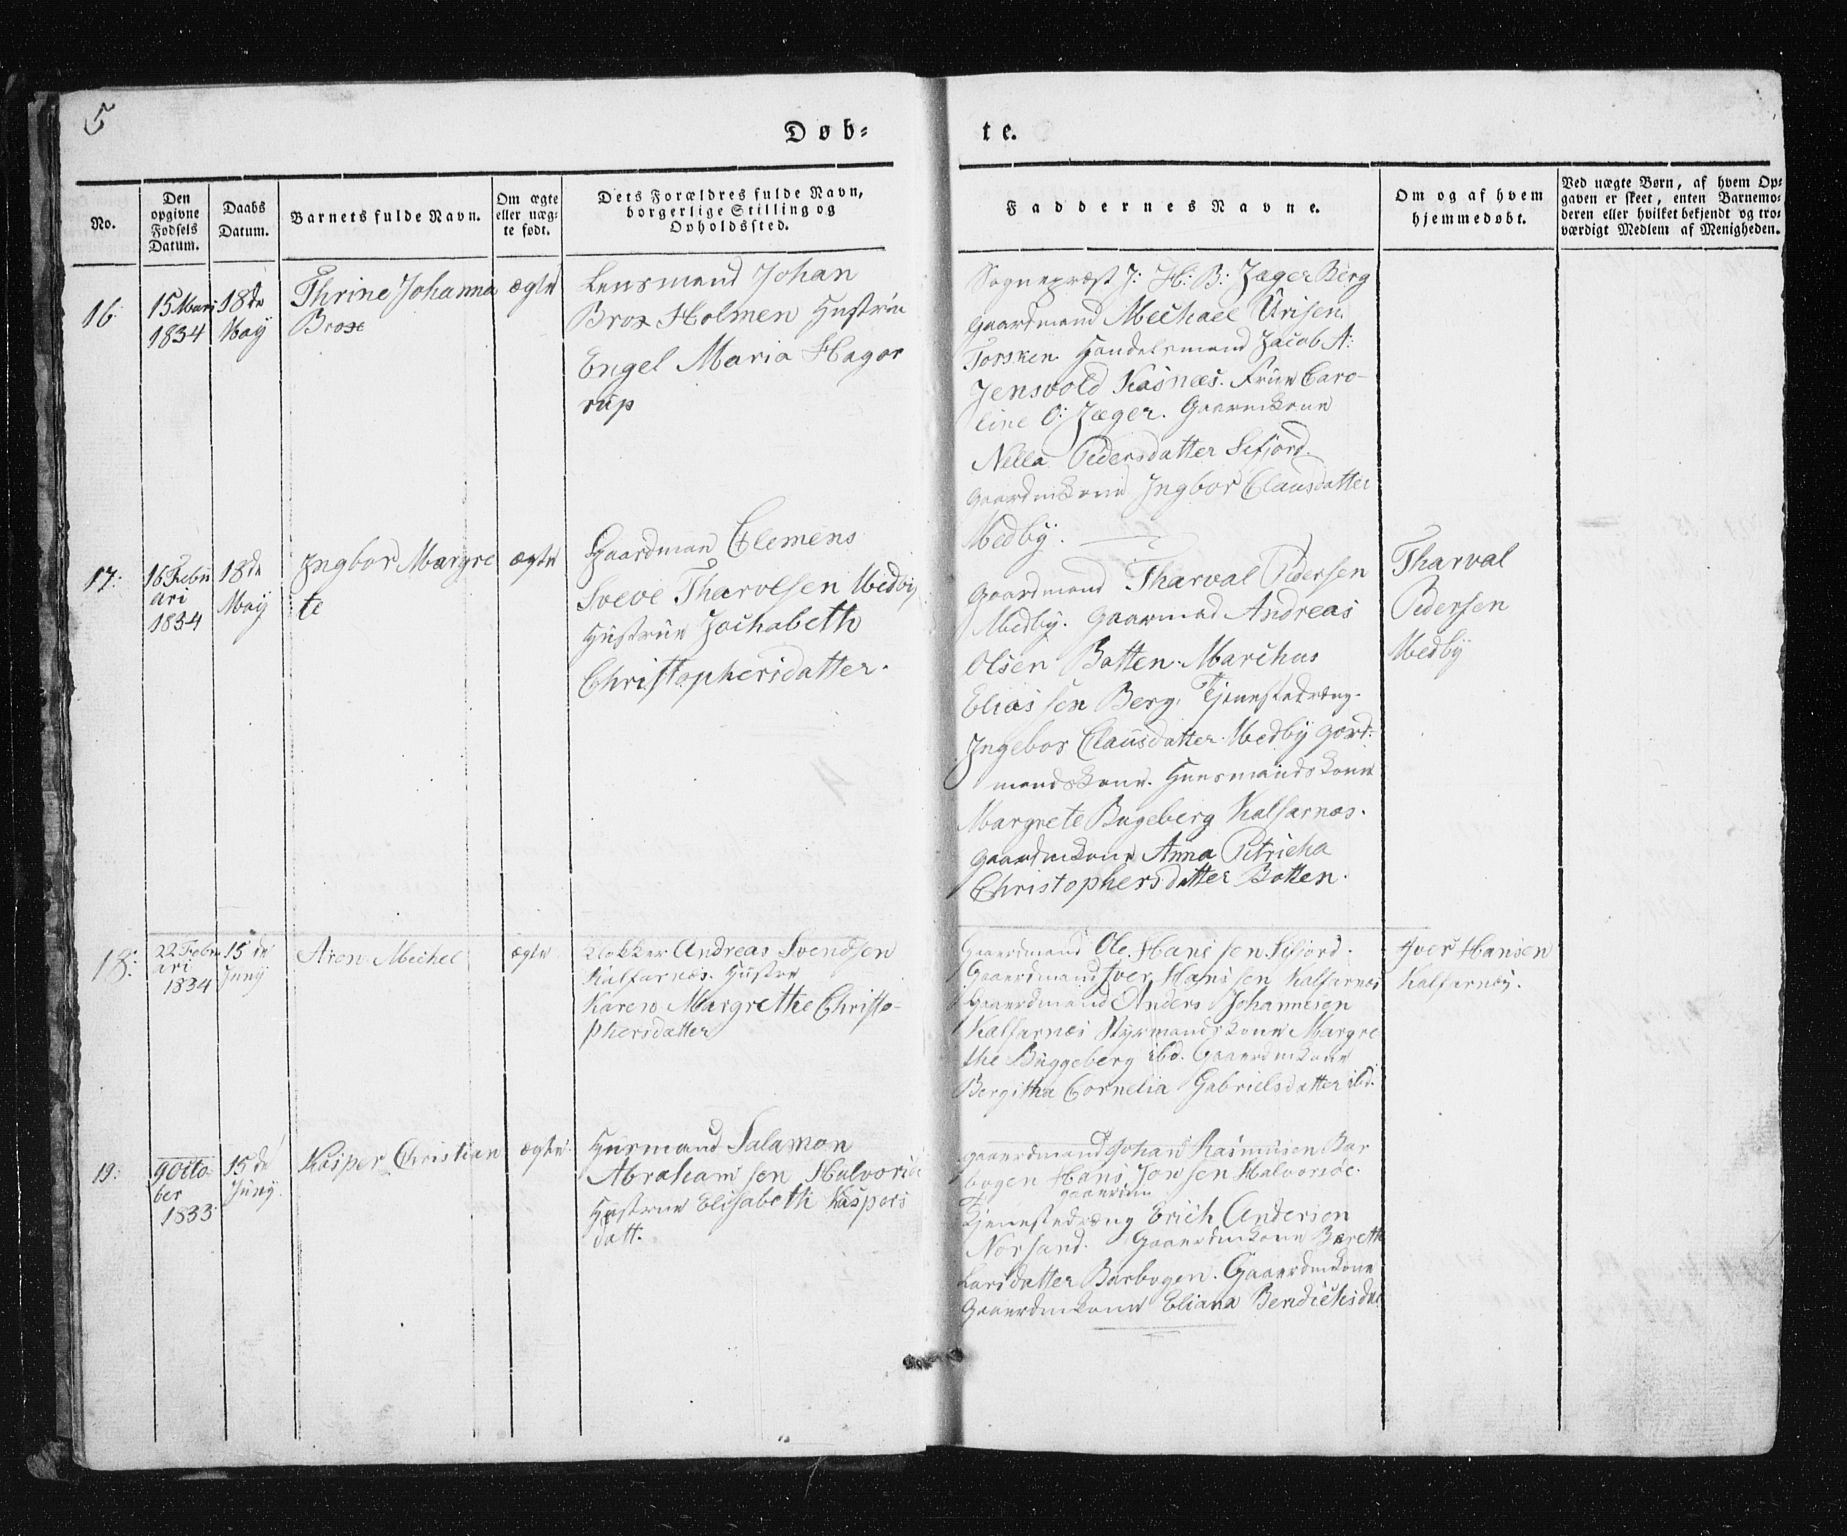 5
Døb-
te.
No.
Den
opgivne
Fødsels
Datum.
Daabs
Datum.
Barnets fulde Navn.
Om ægte
eller uæg-
te født.
Dets Forældres fulde Navn,
borgerlige Stilling og
Opholdssted.
Faddernes Navne.
Om og af hvem
hjemmedøbt.
Ved uægte Børn, af hvem Op-
gaven er skeet, enten Barnemo-
deren eller hvilket bekjendt og tro-
værdigt Medlem af Menigheden.
16:
15 Mars
1834
18de
May
Thrine Johanna
Brox
ægte
Lensmand Johan
Brox Holmen Hustrue
Engel Maria Hagor
rup
Sognepræst J: H: B: Jager Berg
Gaardmand Mechael Urisen
Torsken. Handelsmand Jacob A:
Jensvold Kasnæs. Frue Caro-
line O: Jæger. Gaarmkone
Nella Pedersdatter Sefjord.
Gaardmkone Ingbor Clausdatter
Medby.
17:
16 Febru
ari
1834
18de
May
Ingbor Margre
te
ægte
Gaardman Clemens
Sveve Tharvelsen Medby
Hustrue Jochabeth
Christophersdatter.
Gaardmand Tharval Pedersen
Medby. Gaarmad Andreas
Olsen Botten. Marchus
Eliassen Berg, Tjenestedræng.
Ingebor Clausdatter. Medby gard-
mandskone. Huusmandskone
Margrete Bugeberg Kalfarnæs.
Gaardmkone Anna Petricha
Christophersdatter Botten.
Tharval
Pedersen
Medby
18:
22 Febru
ari
1834
15 de
Juny
Aron Mechel
ægte
Klokker Andreas Svendsen
Kalfarnæs. Hustru
Karen Margrethe Christo-
phersdatter
Gaardmand Ole Hansen Sifjord.
Gaardmand Iver Hansen Kalfarnæs
Gaardmand Anders Johannesen
Kalfarnæs Styrmandskone Margre
the Buggeberg ibd. Gaardmkone
Bergitha Cornelia Gabrielsdatter ibd.
Iver Hansen
Kalfarnæs.
19:
9 Octo
ber
1833
15 de
Juny
Kasper Christian
ægte
Husmand Salamon
Abrahamsen Halvorsøe
Hustrue Elisabeth Kaspers
datt.
Gaardmand Johan Rasmusen Bar
bogen Hans Jonsen Halvorsøe.
gaardm
Tjenestedræng Erich Andersen
Norsand. Gaardmkone Bereth
Larsdatter Barbogen. Gaardmkone
Gaardmkone Eliana Bendichsdat